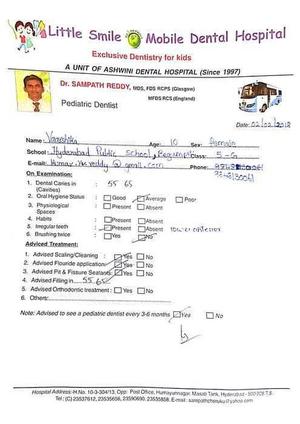 Little Smile Mobile Dental Hospital
Exclusive Dentistry for kids
A UNIT OF ASHWINI DENTAL HOSPITAL (Since 1997)
Dr. SAMPATH REDDY, MDS, FDS RCPS (Glasgow)
MFDS RCS (England)
Pediatric Dentist
Date: 02/02/2018
Name: Varshika Age: 10 Sex: female
School: Hyderabad Public School, Begumpet Class: 5-G
E-mail: @gmail.com Phone:
On Examination:
1. Dental Caries in (Cavities) : 55 65
2. Oral Hygiene Status : Good Average Poor
3. Physiological Spaces : Present Absent
4. Habits : Present Absent
5. Irregular teeth : Present Absent lower anteriors
6. Brushing twice : Yes No
Adviced Treatment:
1. Advised Scaling/Cleaning : Yes No
2. Advised Flouride application: Yes No
3. Advised Pit & Fissure Sealants: Yes No
4. Advised Filling in 55 65 : Yes No
5. Advised Orthodontic treatment : Yes No
6. Others:
Note: Advised to see a pediatric dentist every 3-6 months Yes No
Hospital Address:-H.No. 10-3-304/13, Opp: Post Office, Humayunnagar, Masab Tank, Hyderabad - 500 028 T.S.
Tel.: (C) 23537612, 23535656, 23390690, 23535808, E-mail: sampathcheruku@yahoo.com